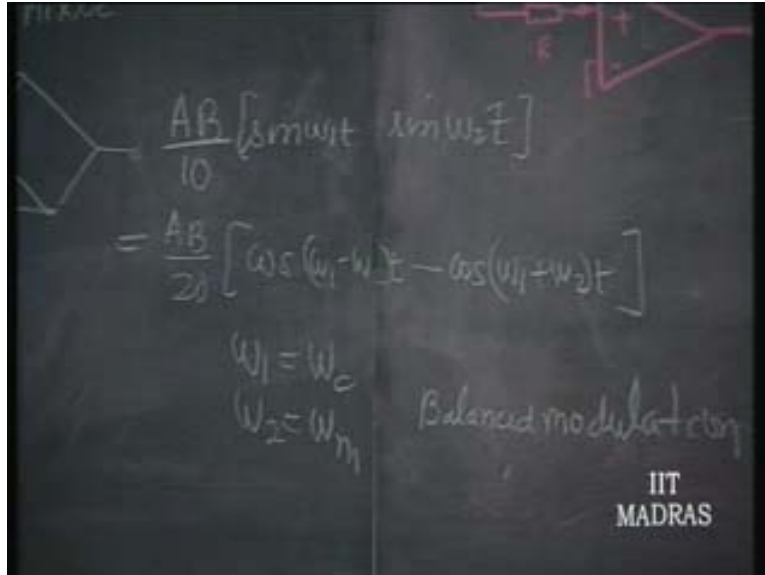 R + -
AB/10 [sin ω₁t sin ω₂t]
= AB/20 [cos(ω₁-ω)t - cos(ω₁+ω₂)t]
ω₁ = ω_c
ω₂ = ω_m
Balanced modulation
IIT
MADRAS